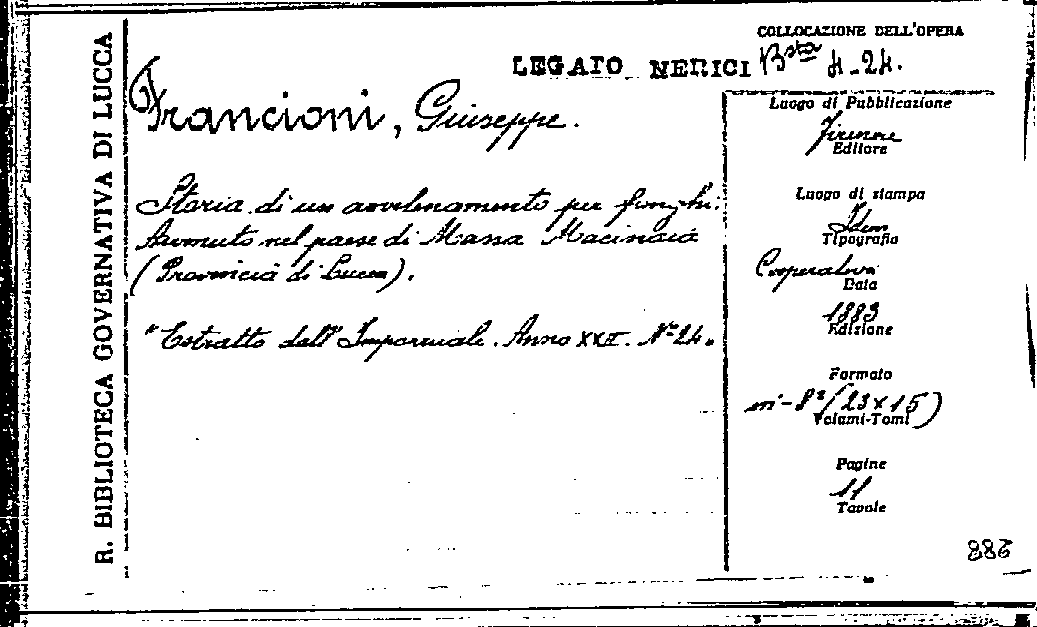 R. BIBLIOTECA GOVERNATIVA DI LUCCA
COLLOCAZIONE DELL'OPERA
LEGATO NERICI Bsta 4-24.
Francioni, Giuseppe.
Storia di un avvelenamento per funghi:
Avvenuto nel paese di Massa Macinaia
(Provincia di Lucca).
"Estratto dall'Imparziale. Anno XXII. N° 24.
Luogo di Pubblicazione
Firenze
Editore
Luogo di stampa
Idem
Tipografia
Cooperativa
Data
1883
Edizione
Formato
in-8° (23×15)
Volumi-Tomi
Pagine
11
Tavole